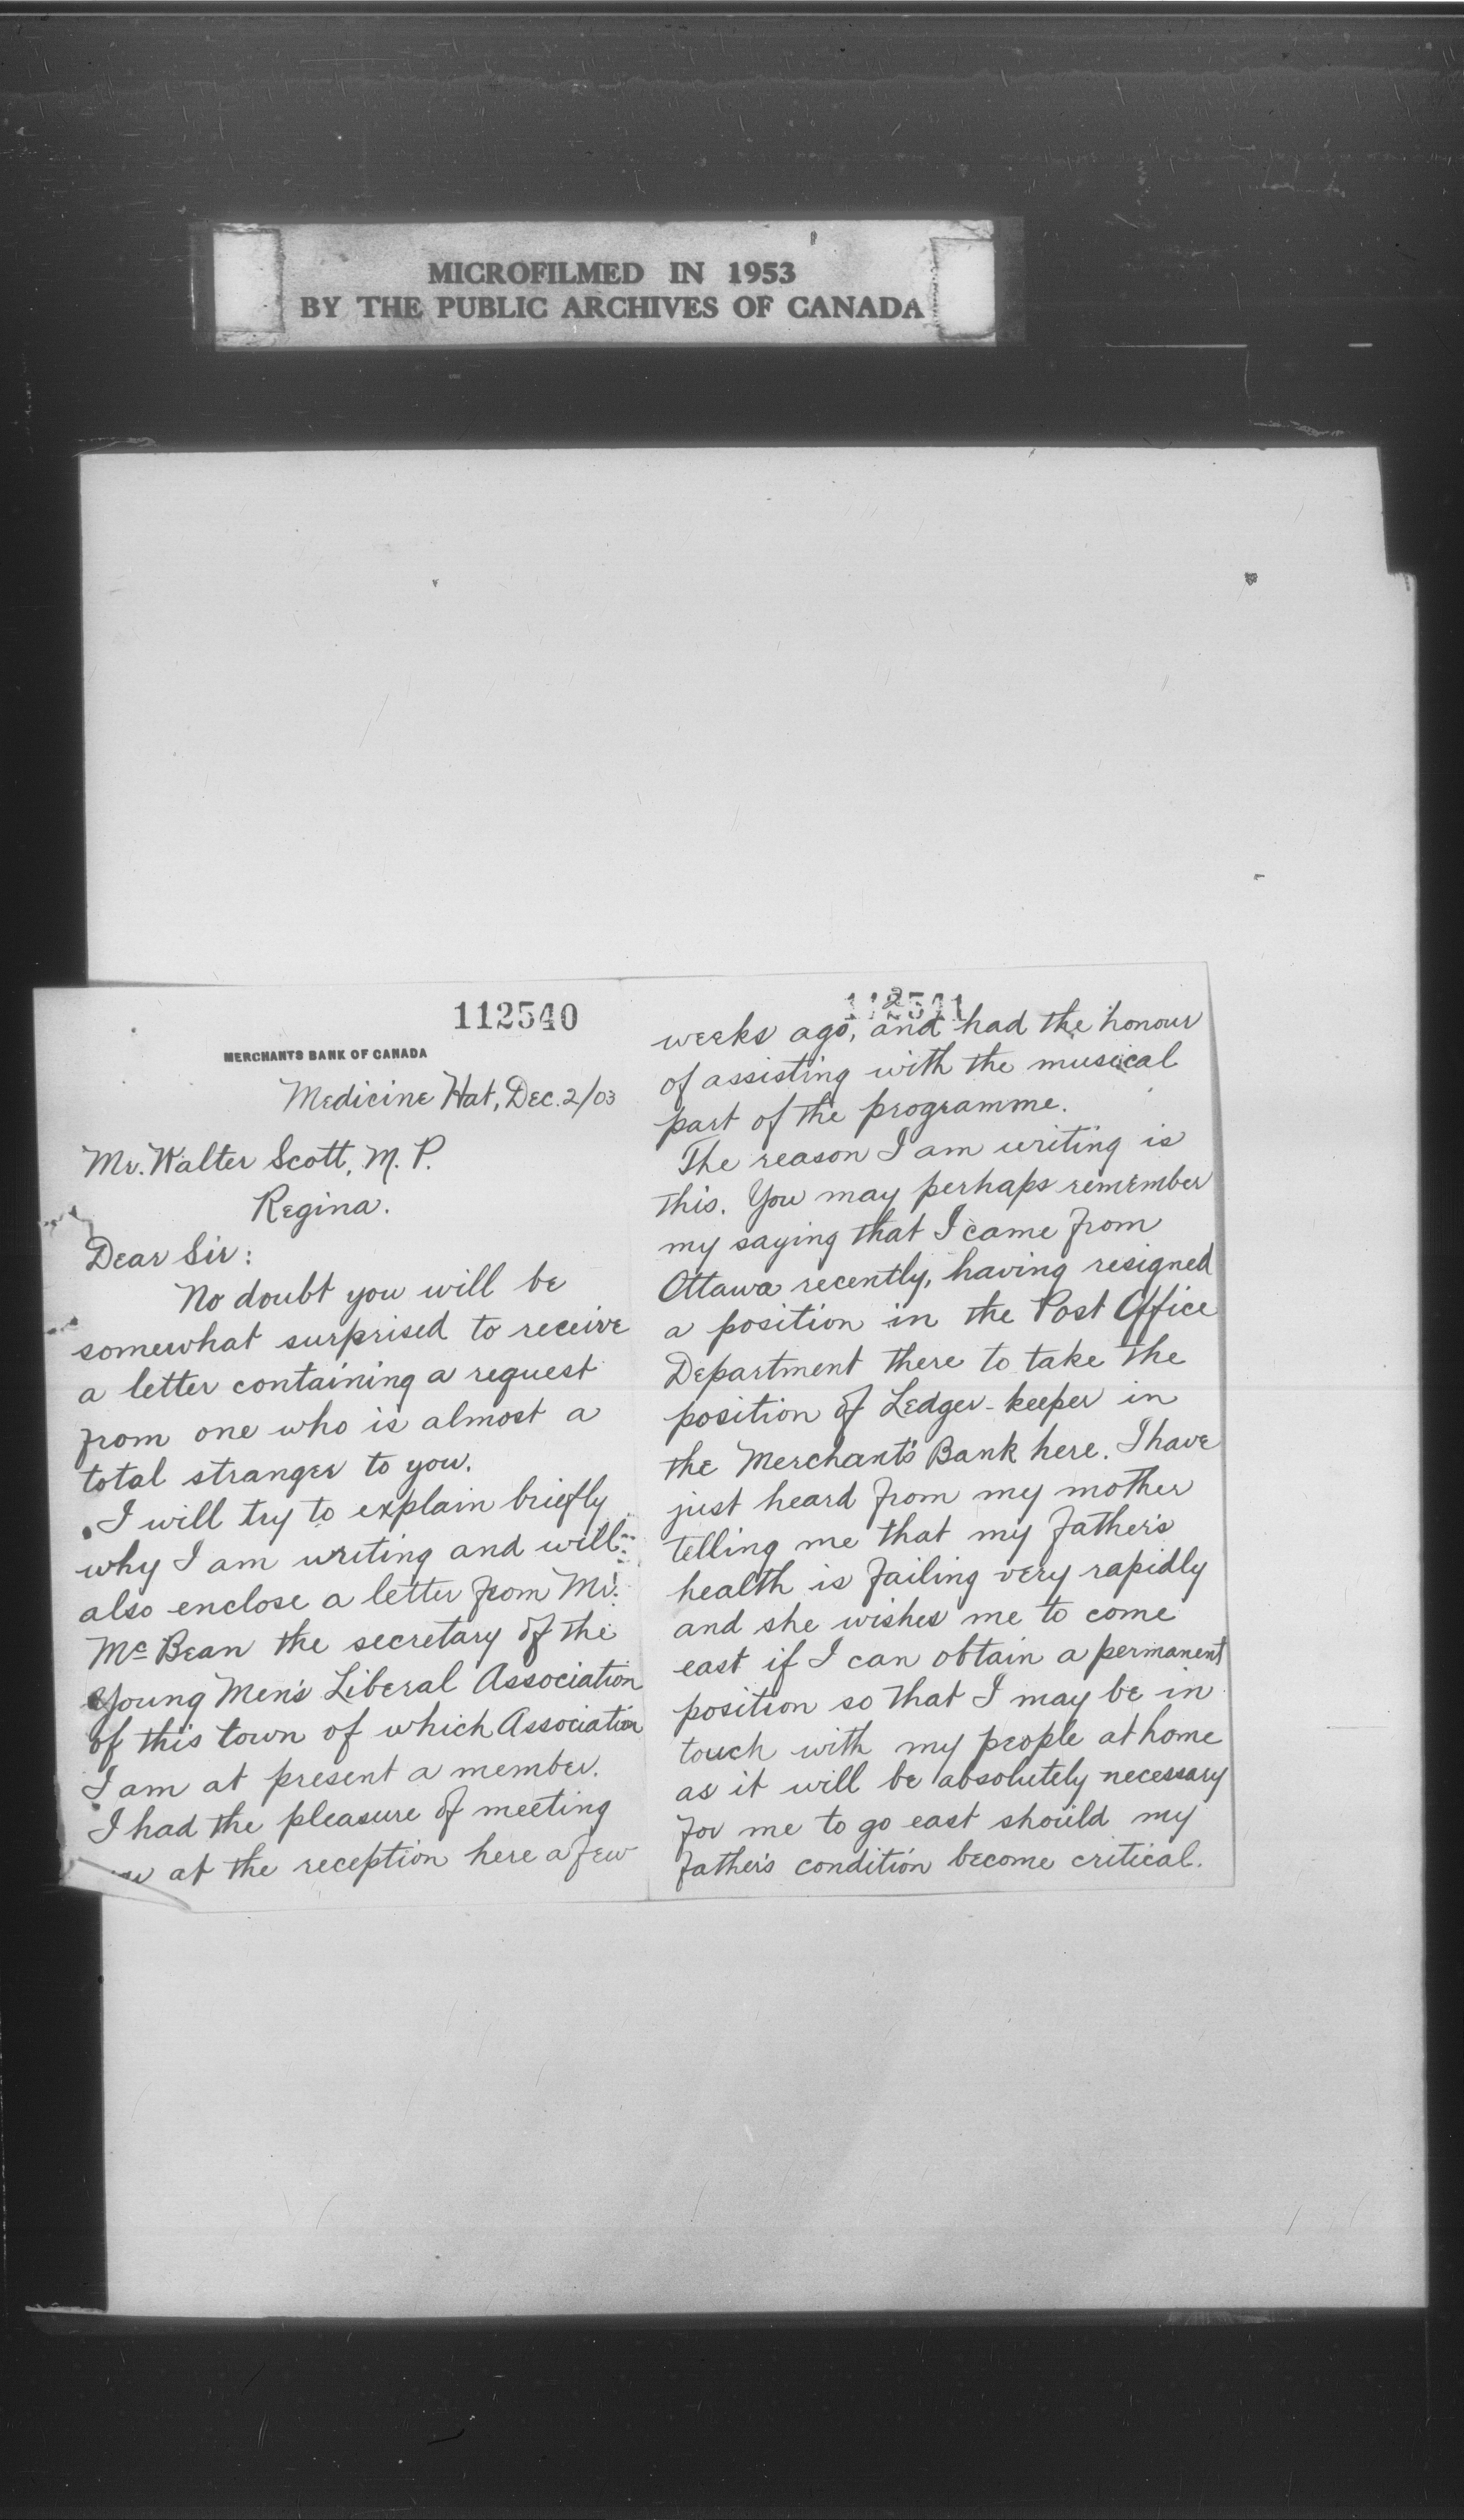 MICROFILMED IN 1953
BY THE PUBLIC ARCHIVES OF CANADA
112540
MERCHANTS BANK OF CANADA
Medicine Hat, Dec. 2/03
Mr. Walter Scott, M. P.
Regina.
Dear Sir:
No doubt you will be
somewhat surprised to receive
a letter containing a request
from one who is almost a
total stranger to you.
I will try to explain briefly
why I am writing and will
also enclose a letter from Mr.
Mc Bean the secretary of the
Young Men's Liberal Association
of this town of which Association
I am at present a member.
I had the pleasure of meeting
at the reception here a few
112541
2
weeks ago, and had the honour
of assisting with the musical
part of the programme.
The reason I am writing is
this. You may perhaps remember
my saying that I came from
Ottawa recently, having resigned
a position in the Post Office
Department there to take the
position of Ledger-keeper in
the Merchant's Bank here. I have
just heard from my mother
telling me that my father's
health is failing very rapidly
and she wishes me to come
east if I can obtain a permanent
position so that I may be in
touch with my people at home
as it will be absolutely necessary
for me to go east should my
father's condition become critical.